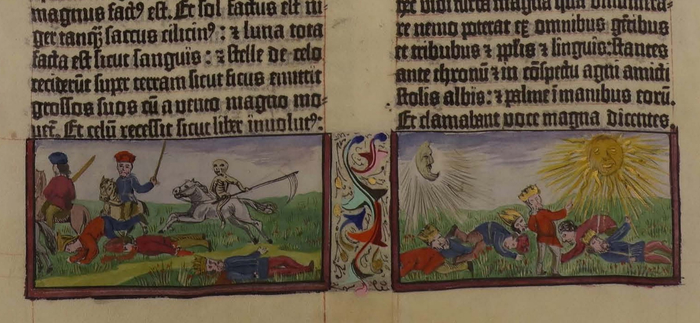 magnus factꝰ est. Et sol factus est ni⸗
ger tanqᷓ saccus cilicinꝰ: ⁊ luna tota
facta est sicut sanguis: ⁊ stelle de celo
ceciderut super terram sicut ficus emittit
grossos suos cū a vento magno mo⸗
uet᷑. Et celū recessit sicut liber īuolutꝰ:
vidi turbā magnā quā dinumera⸗
re nemo poterat ex omnibus gētibus
et tribubus ⁊ pplis ⁊ linguis: stantes
ante thronū ⁊ in cōspectu agni amicti
stolis albis: ⁊ palme ī manibus eorū.
Et clamabant voce magna dicentes.